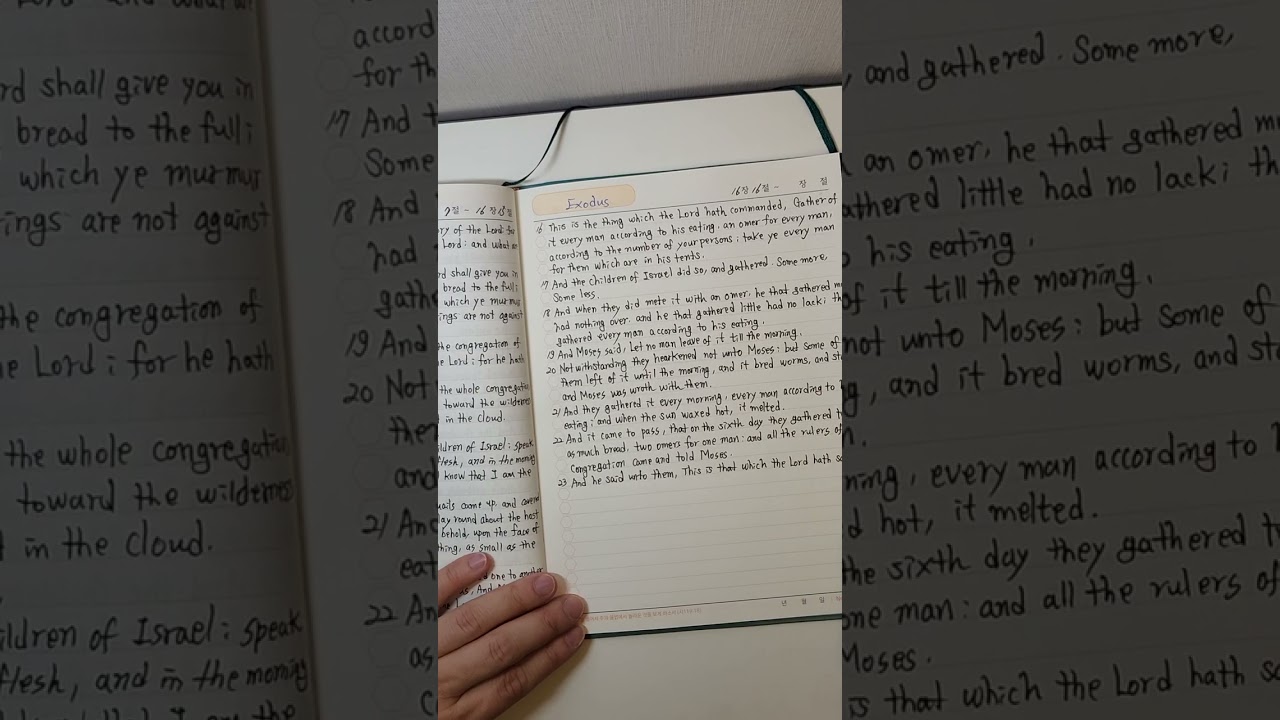 Exodus
16장 16절 - 장 절
16 This is the thing which the Lord hath commanded, Gather of
it every man according to his eating. an omer for every man,
according to the number of your persons; take ye every man
for them which are in his tents.
17 And the children of Israel did so, and gathered. Some more,
Some less.
18 And when they did mete it with an omer, he that gathered
had nothing over. and he that gathered little had no lack;
gathered every man according to his eating.
19 And Moses said, Let no man leave of it till the morning.
20 Notwithstanding they hearkened not unto Moses: but some of
them left of it until the morning, and it bred worms, and
and Moses was wroth with them.
21 And they gathered it every morning, every man according to
eating: and when the sun waxed hot, it melted.
22 And it came to pass, that on the sixth day they gathered
as much bread, two omers for one man: and all the rulers of
Congregation came and told Moses.
23 And he said unto them, This is that which the Lord hath
년 월 일
7절 - 16장 15절
ry of the Lord; for
Lord: and what
rd shall give you in
bread to the full;
which ye murmur
ings are not against
the congregation of
e Lord; for he hath
the whole congregation
toward the wilderness
in the Cloud.
ildren of Israel; speak
flesh, and in the morning
know that I am the
uails came up. and covered
ay round about the host
behold, upon the face of
thing, as small as the
one to another